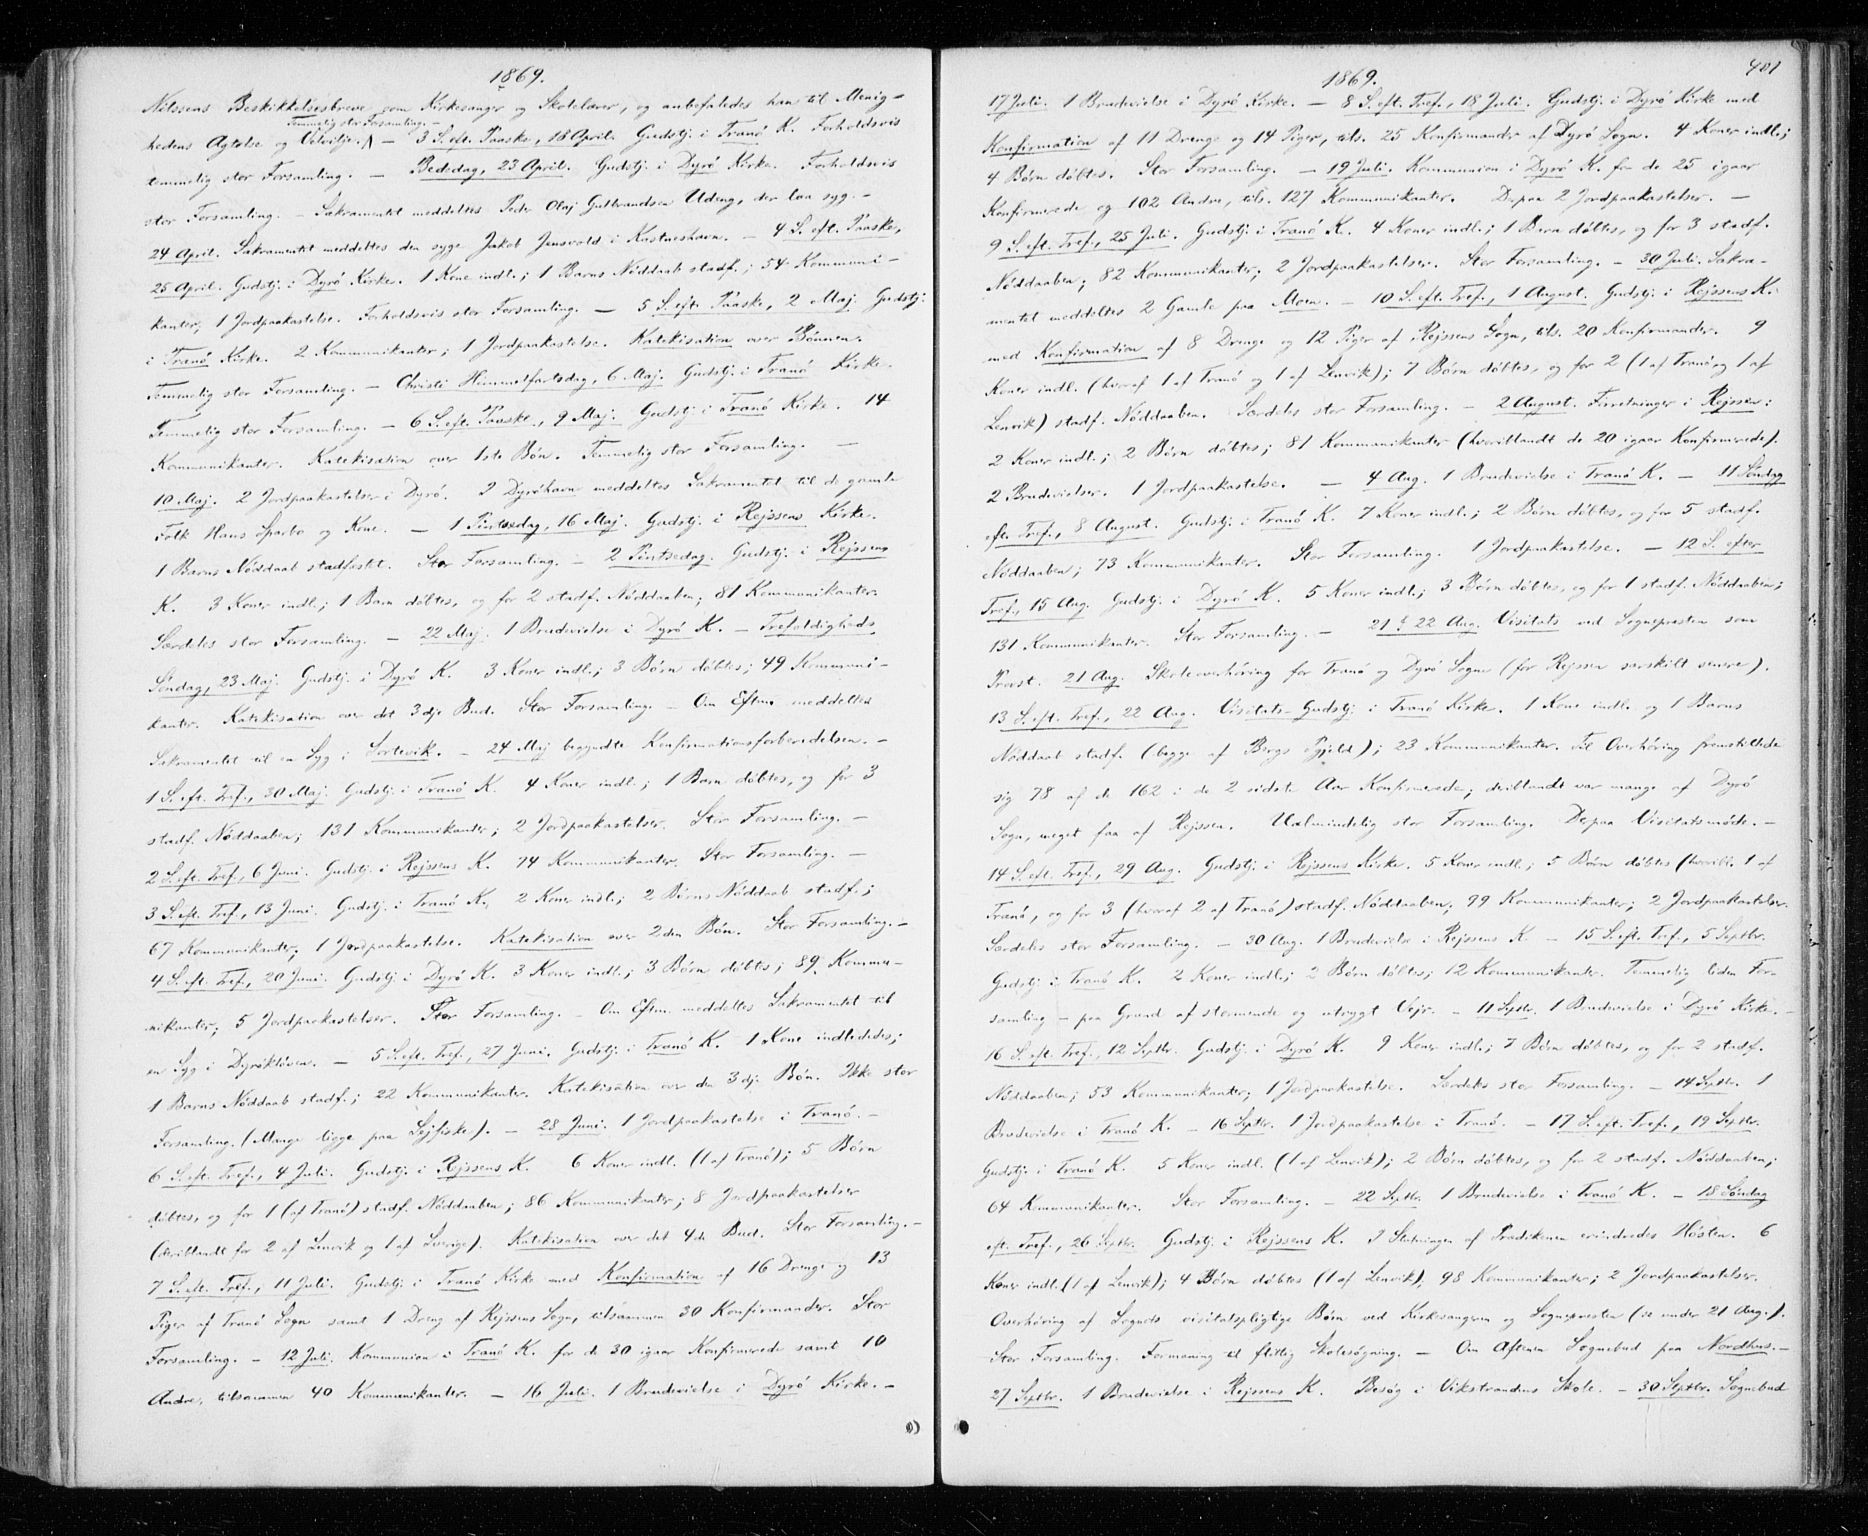 1869.
Nilssens Beskikkelsesbreve som Kirkesanger og Skolelærer, og anbefaledes han til Menig-
Temmelig stor Forsamling. –
hedens Agtelse og Velvilje. – 3 S. eft. Paaske, 18 April. Gudstj. i Tranö K. Forholdsvis
temmelig stor Forsamling. – Bededag, 23 April. Gudstj. i Dyrö Kirke. Forholdsvis
stor Forsamling. – Sakramentet meddeltes Peder Olaj Gulbrandsen Udeng, der laa syg. –
24 April. Sakramentet meddeltes den syge Jakob Jensvold i Kastneshavn. – 4 S. eft. Paaske,
25 April. Gudstj. i Dyrö Kirke. 1 Kone indl.; 1 Barns Nöddaab stadf.; 54 Kommuni-
kanter, 1 Jordpaakastelse. Forholdsvis stor Forsamling. – 5 S. eft. Paaske, 2 Maj. Gudstj.
i Tranö Kirke. 2 Kommunikanter; 1 Jordpaakastelse. Katekisation over Bönnen.
Temmelig stor Forsamling. – Christi Himmelfartsdag, 6 Maj. Gudstj. i Tranö Kirke.
Temmelig stor Forsamling. – 6 S. eft. Paaske, 9 Maj. Gudstj. i Tranö Kirke. 14
Kommunikanter. Katekisation over 1ste Bön. Temmelig stor Forsamling. –
10 Maj. 2 Jordpaakastelser i Dyrö. I Dyröhavn meddeltes Sakramentet til de gamle
Folk Hans Sparbo og Kone. – 1 Pintsedag, 16 Maj. Gudstj. i Rejssens Kirke.
1 Barns Nöddaab stadfæstet. Stor Forsamling. – 2 Pintsedag. Gudstj. i Rejssens
K. 3 Koner indl.; 1 Barn döbtes, og for 2 stadf. Nöddaaben; 81 Kommunikanter.
Særdeles stor Forsamling. – 22 Maj. 1 Brudevielse i Dyrö K. – Trefoldigheds
Söndag, 23 Maj. Gudstj. i Dyrö K. 3 Koner indl.; 3 Börn döbtes; 49 Kommuni-
kanter. Katekisation over det 3dje Bud. Stor Forsamling. – Om Eftm. meddeltes
Sakramentet til en Syg i Sortevik. – 24 Maj begyndte Konfirmationsforberedelsen. –
1 S. eft. Tref., 30 Maj. Gudstj. i Tranö K. 4 Koner indl.; 1 Barn döbtes, og for 3
stadf. Nöddaaben; 131 Kommunikanter; 2 Jordpaakastelser. Stor Forsamling. –
2 S. eft. Tref., 6 Juni. Gudstj. i Rejssens K. 74 Kommunikanter. Stor Forsamling. –
3 S. eft. Tref., 13 Juni. Gudstj. i Tranö K. 2 Koner indl.; 2 Börns Nöddaab stadf.;
67 Kommunikanter; 1 Jordpaakastelse. Katekisation over 2den Bön. Stor Forsamling. –
4 S. eft. Tref., 20 Juni. Gudstj. i Dyrö K. 3 Koner indl.; 3 Börn döbtes; 89 Kommu-
nikanter; 5 Jordpaakastelser. Stor Forsamling. – Om Eftm. meddeltes Sakramentet til
en Syg i Dyröklöven. – 5 S. eft. Tref., 27 Juni. Gudstj. i Tranö K. 1 Kone indlededes;
1 Barns Nöddaab stadf.; 22 Kommunikanter. Katekisation over den 3dje Bön. Ikke stor
Forsamling. (Mange ligge paa Sejfiske). – 28 Juni. 1 Jordpaakastelse i Tranö. –
6 S. eft. Tref., 4 Juli. Gudstj. i Rejssens K. 6 Koner indl. (1 af Tranö); 5 Börn
döbtes, og for 1 (af Tranö) stadf. Nöddaaben; 86 Kommunikanter; 8 Jordpaakastelser
(deriblandt for 2 af Lenvik og 1 af Sverige). Katekisation over det 4de Bud. Stor Forsamling. –
7 S. eft. Tref., 11 Juli. Gudstj. i Tranö Kirke med Konfirmation af 16 Drenge og 13
Piger af Tranö Sogn samt 1 Dreng af Rejssens Sogn, tilsammen 30 Konfirmander. Stor
Forsamling. – 12 Juli. Kommunion i Tranö K. for de 30 igaar Konfirmerede samt 10
Andre, tilsammen 40 Kommunikanter. – 16 Juli. 1 Brudevielse i Dyrö Kirke. –
1869.
401
17 Juli. 1 Brudevielse i Dyrö Kirke. – 8 S. eft. Tref., 18 Juli. Gudstj. i Dyrö Kirke med
Konfirmation af 11 Drenge og 14 Piger, tils. 25 Konfirmander af Dyrö Sogn. 4 Koner indl.;
4 Börn döbtes. Stor Forsamling. – 19 Juli. Kommunion i Dyrö K. for de 25 igaar
Konfirmerede og 102 Andre, tils. 127 Kommunikanter. Derpaa 2 Jordpaakastelser. –
9 S. eft. Tref., 25 Juli. Gudstj. i Tranö K. 4 Koner indl.; 1 Barn döbtes, og for 3 stadf.
Nöddaaben; 82 Kommunikanter; 2 Jordpaakastelser. Stor Forsamling. – 30 Juli. Sakra-
mentet meddeltes 2 Gamle paa Moen. – 10 S. eft. Tref., 1 August. Gudstj. i Rejssens K.
med Konfirmation af 8 Drenge og 12 Piger af Rejssens Sogn, tils. 20 Konfirmander. 9
Koner indl. (hvoraf 1 af Tranö og 1 af Lenvik); 7 Börn döbtes, og for 2 (1 af Tranö og 1 af
Lenvik) stadf. Nöddaaben. Særdeles stor Forsamling. – 2 August. Forretninger i Rejssen:
2 Koner indl.; 2 Börn döbtes; 81 Kommunikanter (hvoriblandt de 20 igaar Konfirmerede).
2 Brudevielser. 1 Jordpaakastelse. – 4 Aug. 1 Brudevielse i Tranö K. – 11 Söndag
eft. Tref., 8 August. Gudstj. i Tranö K. 7 Koner indl.; 2 Börn döbtes, og for 5 stadf.
Nöddaaben; 73 Kommunikanter. Stor Forsamling. 1 Jordpaakastelse. – 12 S. efter
Tref., 15 Aug. Gudstj. i Dyrö K. 5 Koner indl.; 3 Börn döbtes, og for 1 stadf. Nöddaaben;
131 Kommunikanter. Stor Forsamling. – 21 & 22 Aug. Visitats ved Sognepresten som
Provst. 21 Aug. Skoleoverhöring for Tranö og Dyrö Sogne (for Rejssen særskilt senere).
13 S. eft. Tref., 22 Aug. Visitats-Gudstj. i Tranö Kirke. 1 Kone indl. og 1 Barns
Nöddaab stadf. (begge af Bergs Pgjeld); 23 Kommunikanter. Til Overhöring fremstillede
sig 78 af de 162 i de 2 sidste Aar Konfirmerede; deriblandt var mange af Dyrö
Sogn, meget faa af Rejssen. Ualmindelig stor Forsamling. Derpaa Visitatsmöde. –
14 S. eft. Tref., 29 Aug. Gudstj. i Rejssens Kirke. 5 Koner indl.; 5 Börn döbtes (hvoribl. 1 af
Tranö, og for 3 (hvoraf 2 af Tranö) stadf. Nöddaaben; 99 Kommunikanter; 2 Jordpaakastelser.
Særdeles stor Forsamling. – 30 Aug. 1 Brudevielse i Rejssens K. – 15 S. eft. Tref., 5 Septbr.
Gudstj. i Tranö K. 2 Koner indl.; 2 Börn döbtes; 12 Kommunikanter. Temmelig liden For-
samling – paa Grund af stormende og utrygt Vejr. – 11 Septbr. 1 Brudevielse i Dyrö Kirke. –
16 S. eft. Tref., 12 Septbr. Gudstj. i Dyrö K. 9 Koner indl.; 7 Börn döbtes, og for 2 stadf.
Nöddaaben; 53 Kommunikanter; 1 Jordpaakastelse. Særdeles stor Forsamling. – 14 Septbr. 1
Brudevielse i Tranö K. – 16 Septbr. 1 Jordpaakastelse i Tranö. – 17 S. eft. Tref., 19 Septbr.
Gudstj. i Tranö K. 5 Koner indl. (1 af Lenvik); 2 Börn döbtes, og for 2 stadf. Nöddaaben;
64 Kommunikanter. Stor Forsamling. – 22 Septbr. 1 Brudevielse i Tranö K. – 18 Söndag
eft. Tref., 26 Septbr. Gudstj. i Rejssens K. I Slutningen af Prædikenen erindredes Hösten. 6
Koner indl. (1 af Lenvik); 4 Börn döbtes (1 af Lenvik); 98 Kommunikanter; 2 Jordpaakastelser.
Overhöring af Sognets visitatspligtige Börn ved Kirkesangeren og Sognepresten (se under 21 Aug.).
Stor Forsamling. Formaning til flittig Skolesögning. – Om Aftenen Sognebud paa Nordhus. –
27 Septbr. 1 Brudevielse i Rejssens K. Besög i Vikstrandens Skole. – 30 Septbr. Sognebud